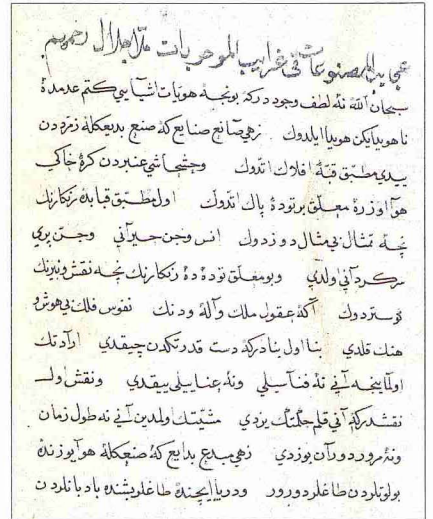 عجايب المصنوعات في غرايب الموجودات ملا جلال رحيم
سبحان الله نه لطف وجوددركه بونجه هويات اشيايى كتم عدمده
ناهويدايكن هويدا ايلدوك زهى صانع صنايع كه صنع بديعكله زمردن
يدى مطبق قبهٔ افلاك اتدوك وجشجاشى عنبردن كرهٔ خاكى
هوا اوزره معلق برتودهٔ پاك اتدوك اول مطبق قبابده زنكارنك
نجه تمثال بى مثال دوزدوك انس وجن حيرانى وجن پرى
سركردانى اولدى وبو معلق توده ده زنكارنك نجه نقش ونيرنك
كوستردوك آكه عقول ملك واله ودنك نفوس فلك بى هوش و
هنك قلدى بنا اول بنادركه دست قدرتكدن چيقدى ارادتك
اولماينجه آنى نه فنا سيلى ونه عنا ييلى ييقدى ونقش اول
نقشدركه آنى قلم حكمتك يزدى مشيتك اولمدين آنى نه طول زمان
ونه مرور دوران بوزدى زهى مبدع بدايع كه صنعكله هوا يوزنده
بولوتلردن طاغلر دورور ودريا ايچنده طاغلر يشنده بادبانلردن